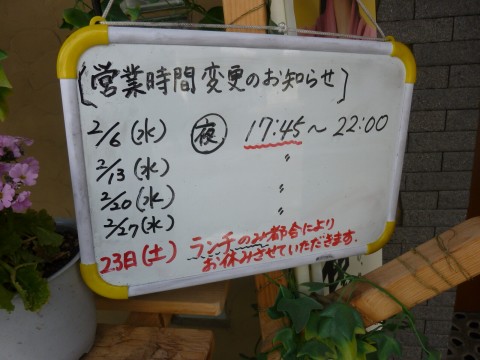 [営業時間変更のお知らせ]
2/6(水) 夜 17:45〜22:00
2/13(水) 〃
2/20(水) 〃
2/27(水) 〃
23日(土) ランチのみ都合により
お休みさせていただきます.